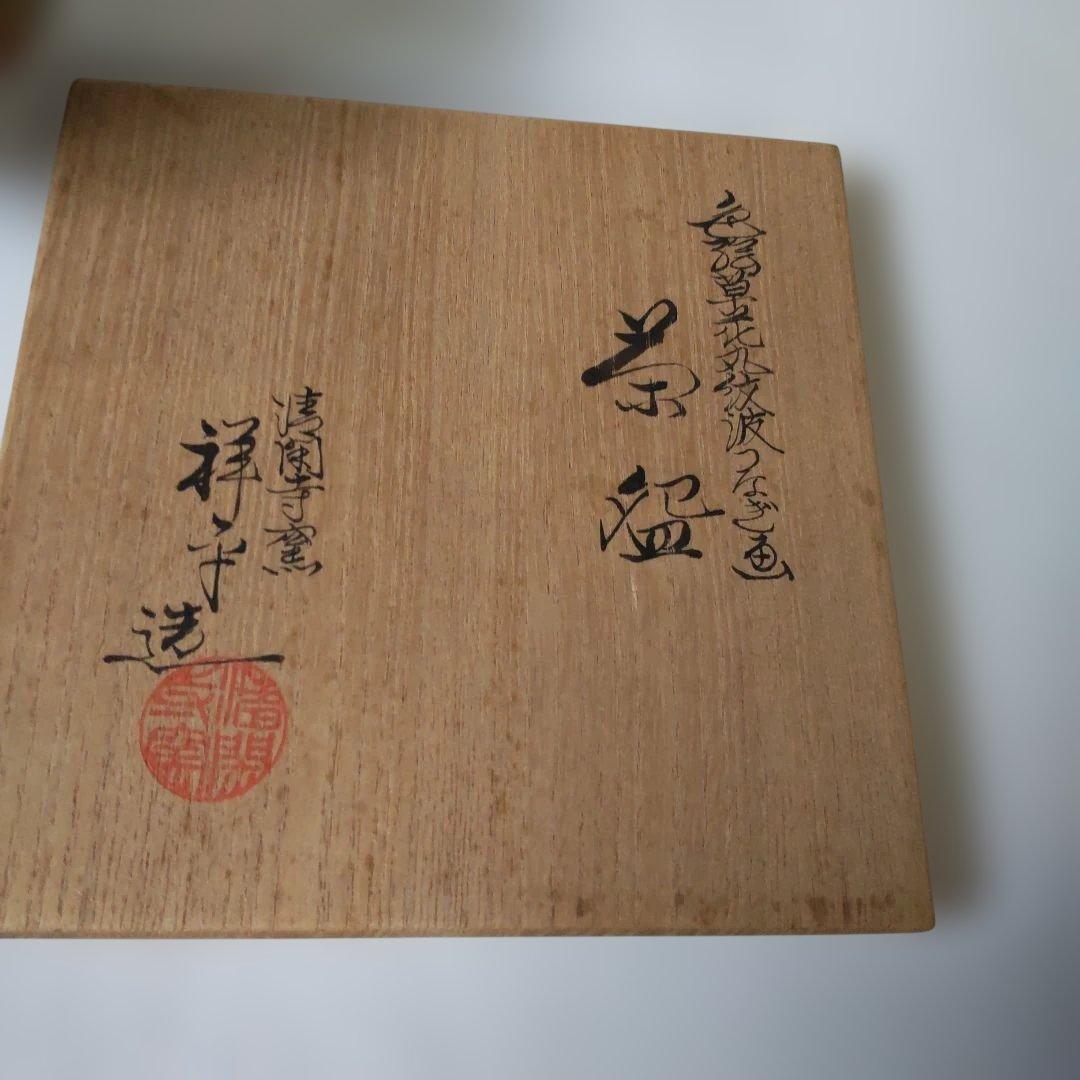 色繪草花丸紋波つなぎ画
茶盌
清閑寺窯
祥平造
清閑
寺窯